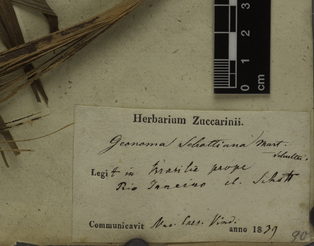 0 1 2 3
cm
Herbarium Zuccarinii.
Geonoma Schottiana Mart.
Legit in Brasilia prope
Rio Janeiro cl. Schott
Communicavit Mus. Caes. Vind. anno 1839